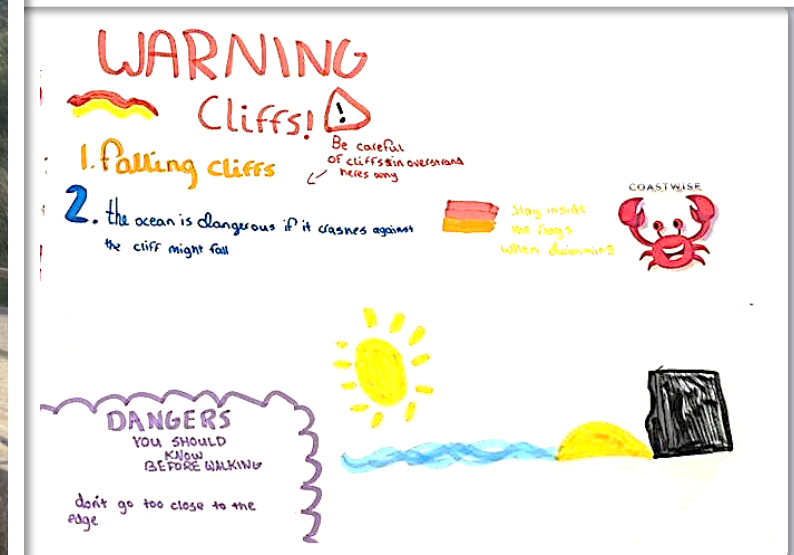 WARNING
Cliffs!
!
Be careful
of cliffs in overstrand
heres why
1. falling cliffs
2. the ocean is dangerous if it crashes against
the cliff might fall
Stay inside
the flags
when
COASTWISE
DANGERS
YOU SHOULD
KNOW
BEFORE WALKING
don't go too close to the
edge